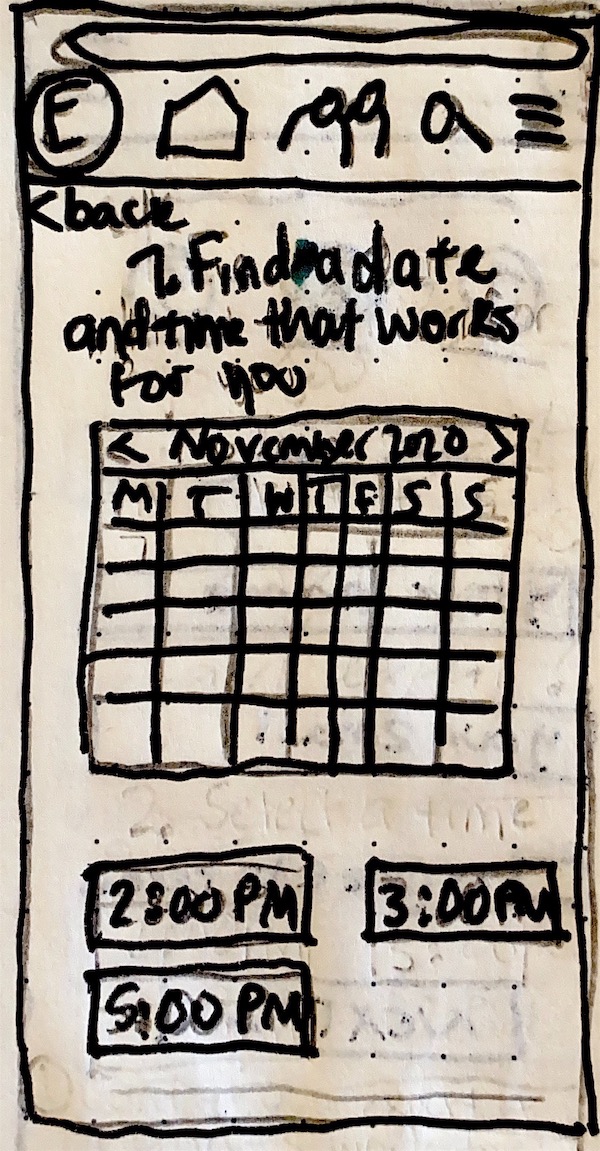 E
<back
1. Find a date
and time that works
for you
< November 2020 >
M T W T F S S
2. Select a time
2:00 PM 3:00 PM
5:00 PM